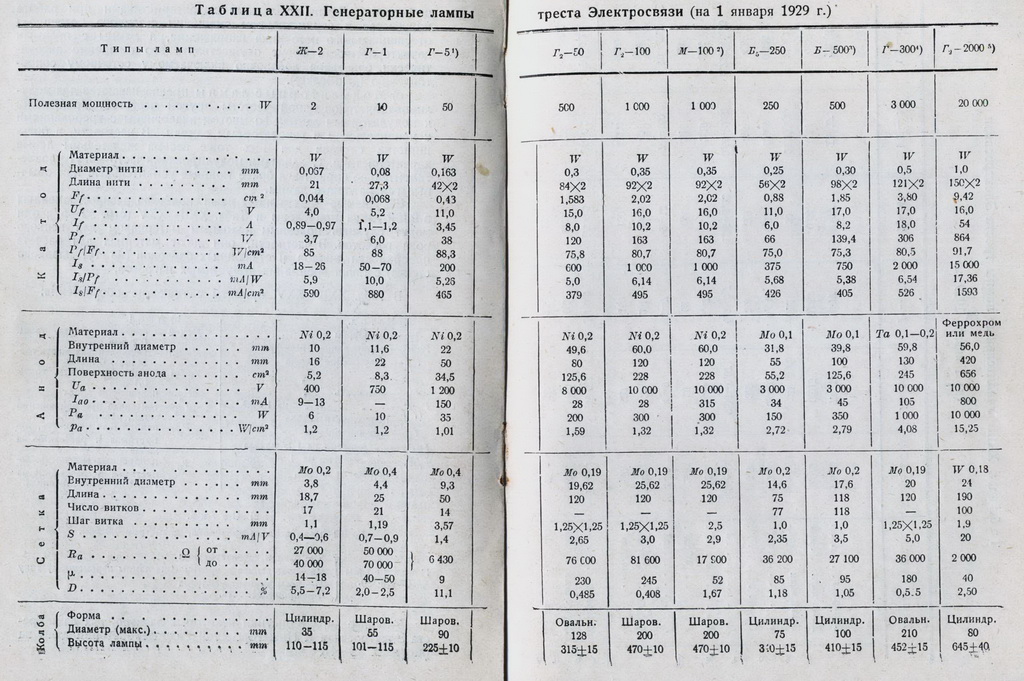 Таблица XXII. Генераторные лампы треста Электросвязи (на 1 января 1929 г.)
Типы ламп Ж—2 Г—1 Г—5¹) Г₂—50 Г₂—100 М—100²) Б₅—250 Б—500³) Г—300⁴) Г₂—2000⁵)
Полезная мощность . . . W 2 10 50 500 1 000 1 000 250 500 3 000 20 000
Катод
Материал . . . W W W W W W W W W W
Диаметр нити . . . mm 0,037 0,08 0,163 0,3 0,35 0,35 0,25 0,30 0,5 1,0
Длина нити . . . mm 21 27,3 42×2 84×2 92×2 92×2 56×2 98×2 121×2 150×2
Ff . . . cm² 0,044 0,068 0,43 1,583 2,02 2,02 0,88 1,85 3,80 9,42
Uf . . . V 4,0 5,2 11,0 15,0 16,0 16,0 11,0 17,0 17,0 16,0
If . . . A 0,89—0,97 1,1—1,2 3,45 8,0 10,2 10,2 6,0 8,2 18,0 54
Pf . . . W 3,7 6,0 38 120 163 163 66 139,4 306 864
Pf|Ff . . . W|cm² 85 88 88,3 75,8 80,7 80,7 75,0 75,3 80,5 91,7
Is . . . mA 18—26 50—70 200 600 1 000 1 000 375 750 2 000 15 000
Is|Pf . . . mA|W 5,9 10,0 5,26 5,0 6,14 6,14 5,68 5,38 6,54 17,36
Is|Ff . . . mA|cm² 590 880 465 379 495 495 426 405 526 1593
Анод
Материал . . . Ni 0,2 Ni 0,2 Ni 0,2 Ni 0,2 Ni 0,2 Ni 0,2 Mo 0,1 Mo 0,1 Ta 0,1—0,2 Феррохром или медь
Внутренний диаметр . . . mm 10 11,6 22 49,6 60,0 60,0 31,8 39,8 59,8 56,0
Длина . . . mm 16 22 50 80 120 120 55 100 130 420
Поверхность анода . . . cm² 5,2 8,3 34,5 125,6 228 228 55,2 125,6 245 656
Ua . . . V 400 750 1 200 8 000 10 000 10 000 3 000 3 000 10 000 10 000
Iao . . . mA 9—13 — 150 28 28 315 34 45 105 800
Pa . . . W 6 10 35 200 300 300 150 350 1 000 10 000
pa . . . W|cm² 1,2 1,2 1,01 1,59 1,32 1,32 2,72 2,79 4,08 15,25
Сетка
Материал . . . Mo 0,2 Mo 0,4 Mo 0,4 Mo 0,19 Mo 0,19 Mo 0,19 Mo 0,2 Mo 0,2 Mo 0,19 W 0,18
Внутренний диаметр . . . mm 3,8 4,4 9,3 19,62 25,62 25,62 14,6 17,6 20 24
Длина . . . mm 18,7 25 50 120 120 120 75 118 120 190
Число витков . . . 17 21 14 — — — 77 118 — 100
Шаг витка . . . mm 1,1 1,19 3,57 1,25×1,25 1,25×1,25 2,5 1,0 1,0 1,25×1,25 1,9
S . . . mA|V 0,4—0,6 0,7—0,9 1,4 2,65 3,0 2,9 2,35 3,5 5,0 20
Ra . . . Ω { от . . . 27 000 50 000 } 6 430 76 000 81 600 17 900 36 200 27 100 36 000 2 000
до . . . 40 000 70 000
μ . . . 14—18 40—50 9 230 245 52 85 95 180 40
D . . . % 5,5—7,2 2,0—2,5 11,1 0,485 0,408 1,67 1,18 1,05 2,50
Колба
Форма . . . Цилиндр. Шаров. Шаров. Овальн. Шаров. Шаров. Цилиндр. Цилиндр. Овальн. Цилиндр.
Диаметр (макс.) . . . mm 35 55 90 128 200 200 75 100 210 80
Высота лампы . . . mm 110—115 101—115 225±10 315±15 470±10 470±10 410±15 452±15 645±40